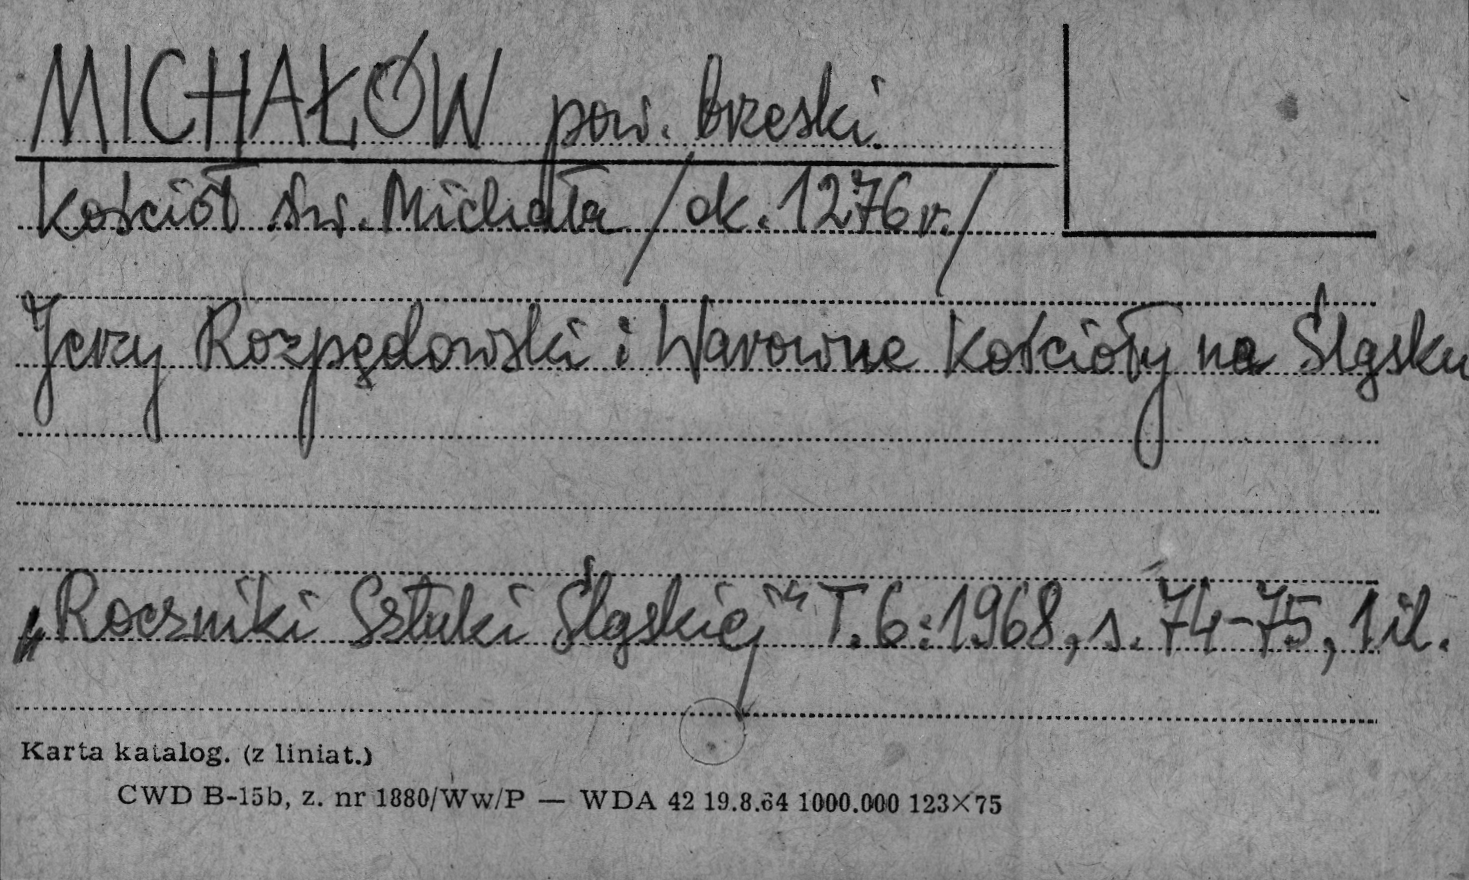 MICHAŁÓW pow. brzeski.
Kościół św. Michała /ok. 1276 r./
Jerzy Rozpędowski : Warowne kościoły na Śląsku
„Roczniki Sztuki Śląskiej" T. 6: 1968, s. 74-75, 1 il.
Karta katalog. (z liniat.)
CWD B-15b, z. nr 1880/Ww/P — WDA 42 19.8.64 1000.000 123×75